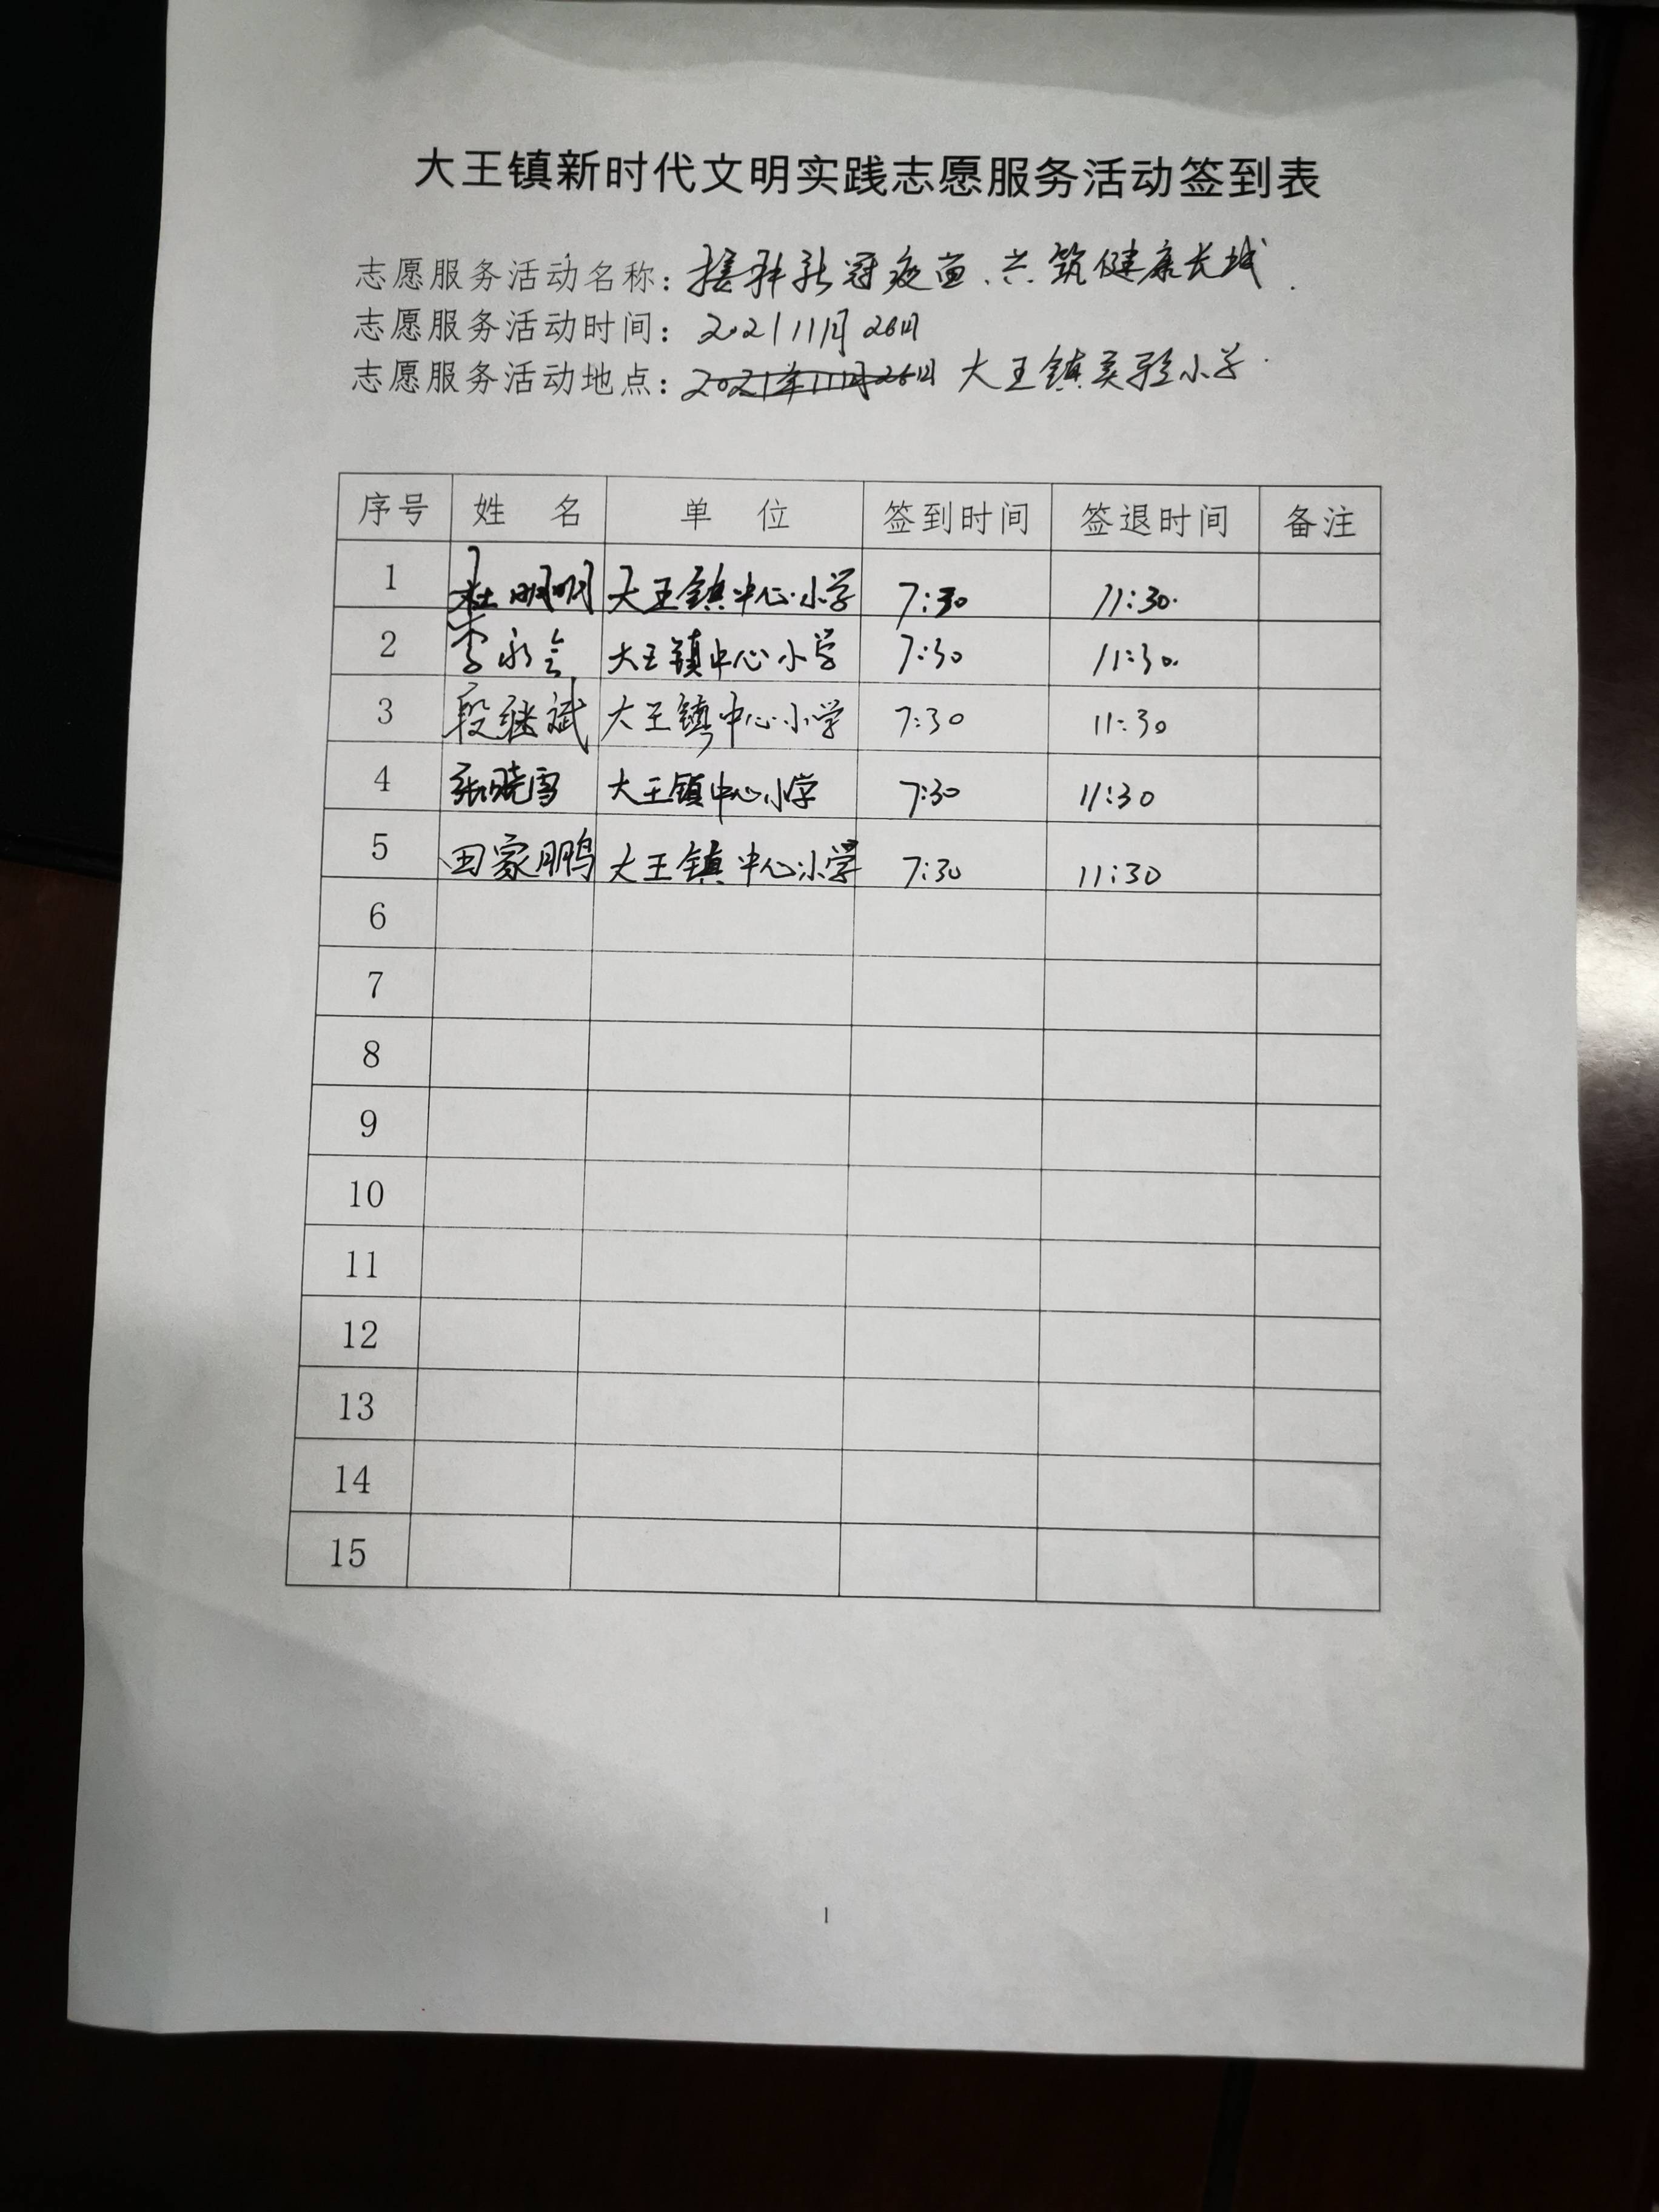 大王镇新时代文明实践志愿服务活动签到表
志愿服务活动名称：接种新冠疫苗、共筑健康长城.
志愿服务活动时间：2021 11月26日
志愿服务活动地点：2021年11月26日 大王镇实验小学.
序号 姓 名 单 位 签到时间 签退时间 备注
1 杜明明 大王镇中心小学 7:30 11:30.
2 李永会 大王镇中心小学 7:30 11:30.
3 段继斌 大王镇中心小学 7:30 11:30
4 张晓雪 大王镇中心小学 7:30 11:30
5 田家鹏 大王镇中心小学 7:30 11:30
6
7
8
9
10
11
12
13
14
15
1